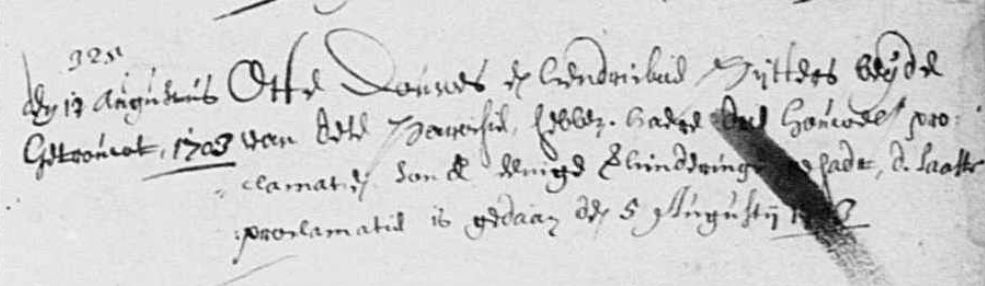 325
den 12 Augustus Otte Douwes en Hendrikus Hijttes beijde
Getrouwt, 1703 van dese Parochie, hebben haere houwel. pro-
clamatien sonder eenige Verhinderinge gehadt, d. laatste
proclamatie is gedaan den 5 Augustij 1703